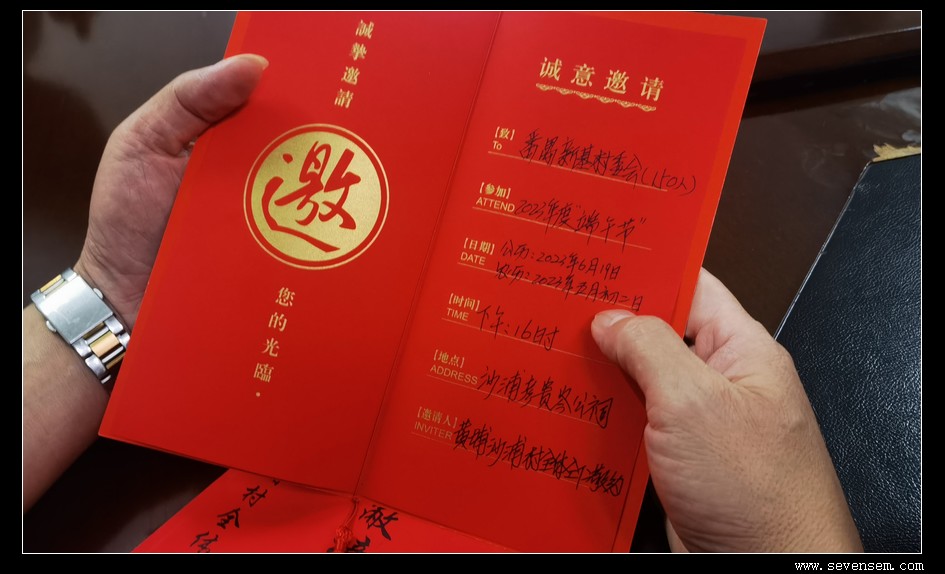 誠摯邀請
邀
您的光臨。
诚意邀请
【致】
To
番禺新基村委会(150人)
【参加】
ATTEND
2023年度"端午节"
【日期】
DATE
公历:2023年6月19日
农历:2023年五月初二日
【时间】
TIME
下午:16时
【地点】
ADDRESS
沙浦
公祠
【邀请人】
INVITER
黄埔沙浦村全体
村全体
邀
www.sevensem.com